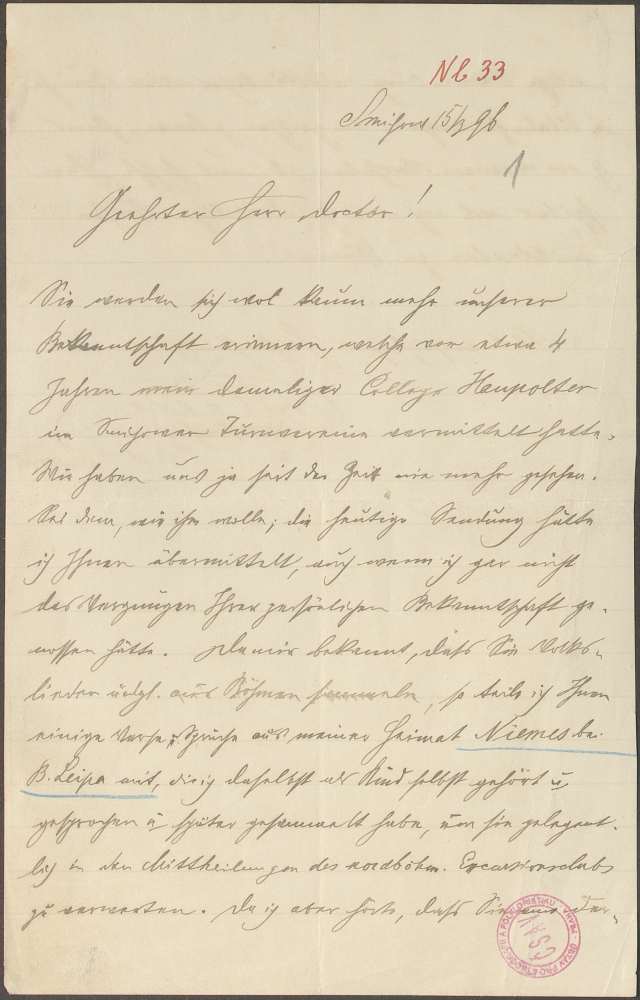 Nb 33
Smichow 15/ 96
1
Geehrter Herr Doctor!
Sie werden sich wol kaum mehr unserer
Bekanntschaft erinnern, welche vor etwa 4
Jahren mein damaliger College Haupolter
im Smichower Turnvereine vermittelt hatte.
Wir haben uns ja seit der Zeit nie mehr gesehen.
Sei dem, wie ihm wolle; die heutige Sendung hätte
ich Ihnen übermittelt, auch wenn ich gar nicht
das Vergnügen Ihrer persönlichen Bekanntschaft ge-
nossen hätte. Da mir bekannt, daß Sie Volks-
lieder udgl. aus Böhmen sammeln, so teile ich Ihnen
einige Verse u. Sprüche aus meiner Heimat Niemes bei
B. Leipa mit, die ich daselbst als Kind selbst gehört u.
gesprochen u. später gesammelt habe, um sie gelegent-
lich in den Mittheilungen des nordböhm. Excursionsclubs
zu verwerten. Da ich aber hörte, daß Sie eine Der-